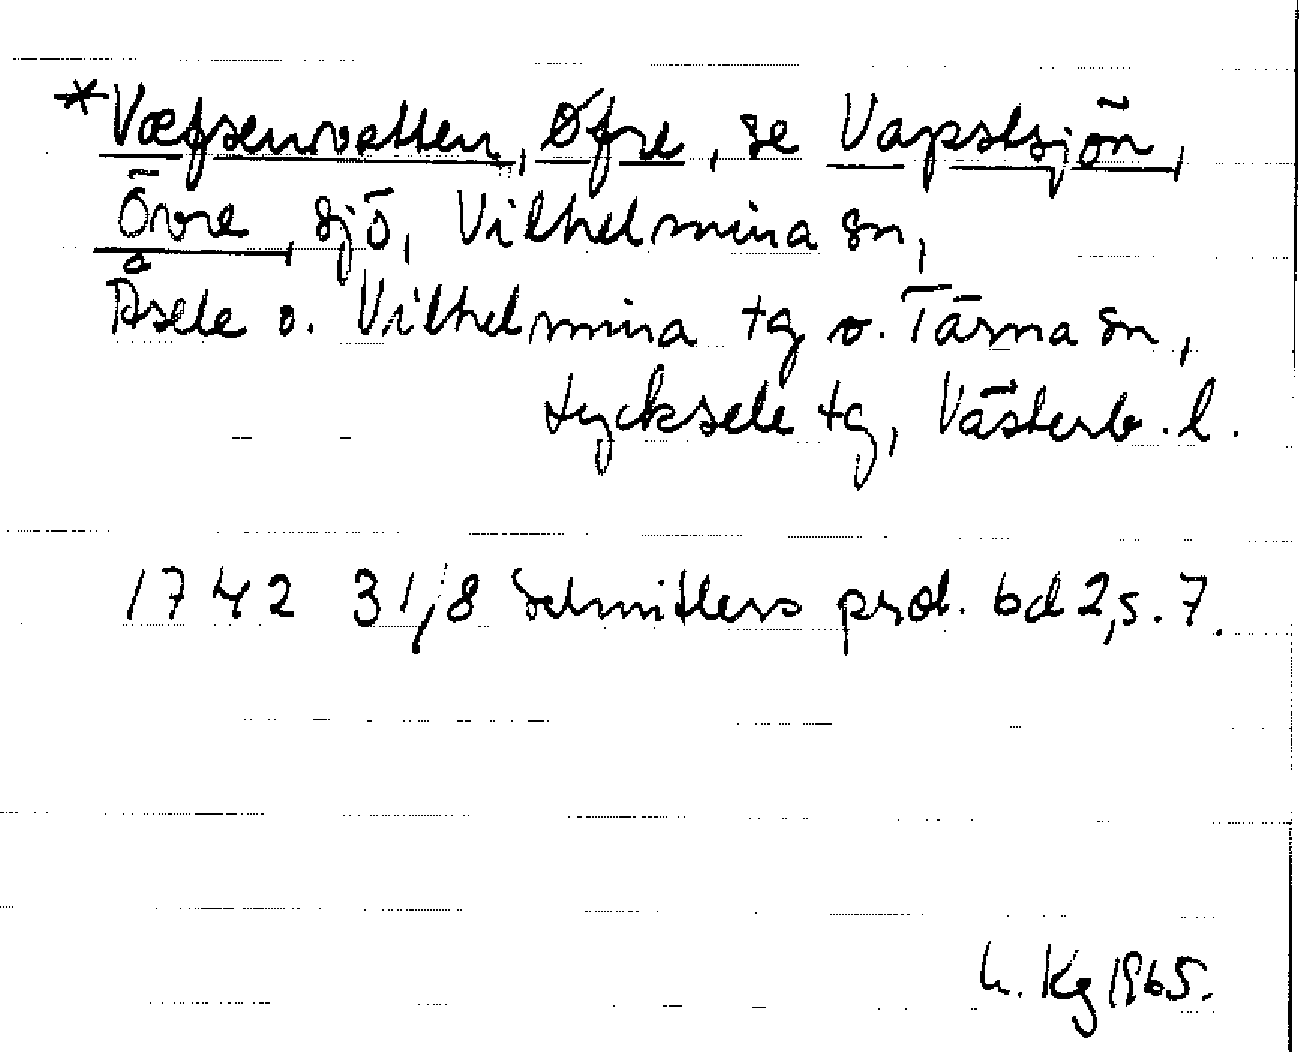 *Væfsenvatten, Øfre, se Vapstsjön,
Övre, sjö, Vilhelmina sn,
Åsele o. Vilhelmina tg o. Tärna sn,
Lycksele tg, Västerb. l.
1742 31/8 Schnitlers prot. bd 2, s. 7.
h. Kg 1965.